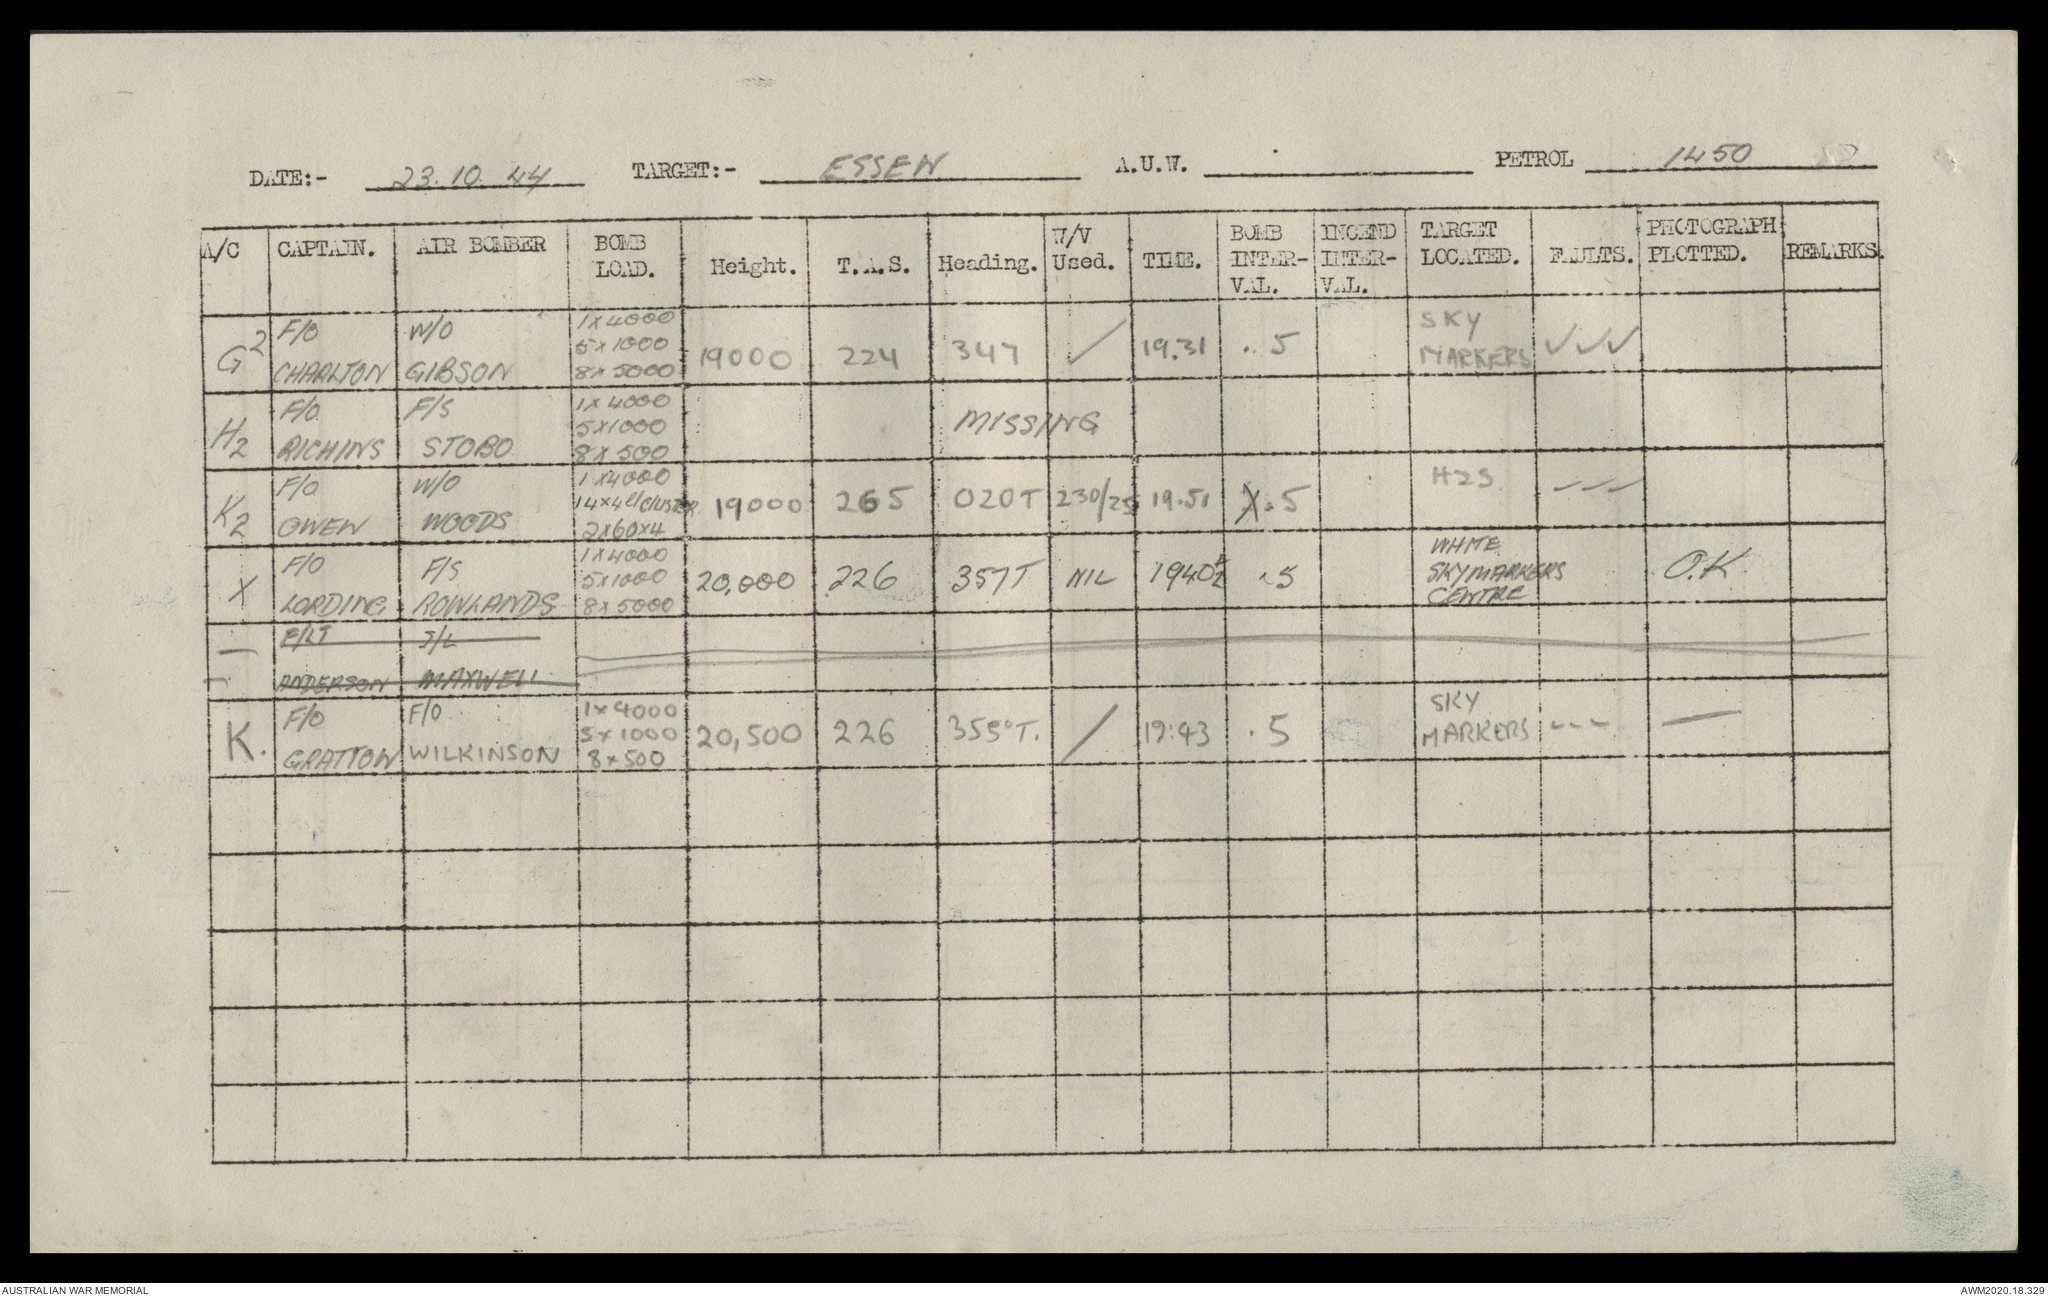 DATE:- 23.10.44 TARGET:- ESSEN A.U.W. PETROL 1450
A/C CAPTAIN. AIR BOMBER BOMB LOAD. Height. T.A.S. Heading. W/V Used. TIME. BOMB INTER-VAL. INCEND INTER-VAL. TARGET LOCATED. FAULTS. PHOTOGRAPH PLOTTED. REMARKS.
G2 F/O W/O 1x4000 SKY
5x1000 19000 224 347 ✓ 19.31 .5 MARKERS ✓✓✓
CHARLTON GIBSON 8x5000
H2 F/O F/S 1x4000
5x1000 MISSING
RICHINS STOBO 8x500
K2 F/O W/O 1x4000 H2S
14x4lb CLUSTER 19000 265 020T 230/25 19.51 .5 ✓✓✓
OWEN WOODS 2x60x4
X F/O F/S 1x4000 WHITE
5x1000 20,000 226 357T NIL 1940½ .5 SKYMARKERS O.K.
LORDING ROWLANDS 8x5000 CENTRE
F/LT
ANDERSON MAXWELL
K. F/O F/O 1x4000 SKY
5x1000 20,500 226 355°T. / 19:43 .5 MARKERS --- —
GRATTON WILKINSON 8x500
AUSTRALIAN WAR MEMORIAL
AWM2020.18.329